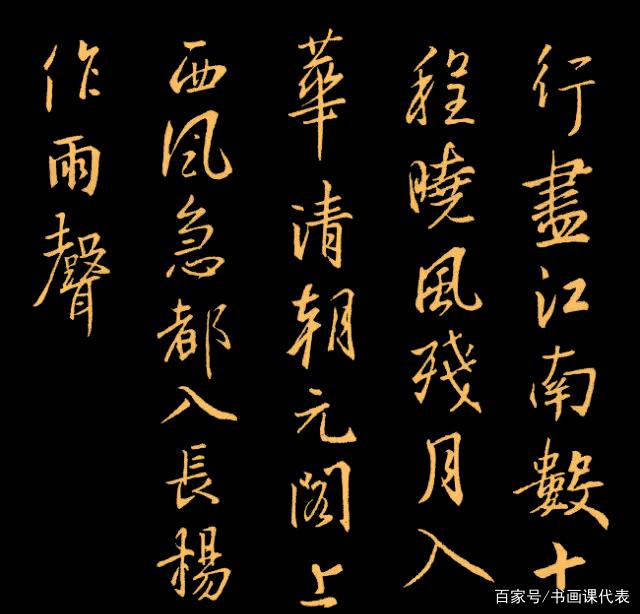 行盡江南數十
程曉風殘月入
華清朝元閣上
西风急都入長楊
作雨聲
百家号/书画课代表